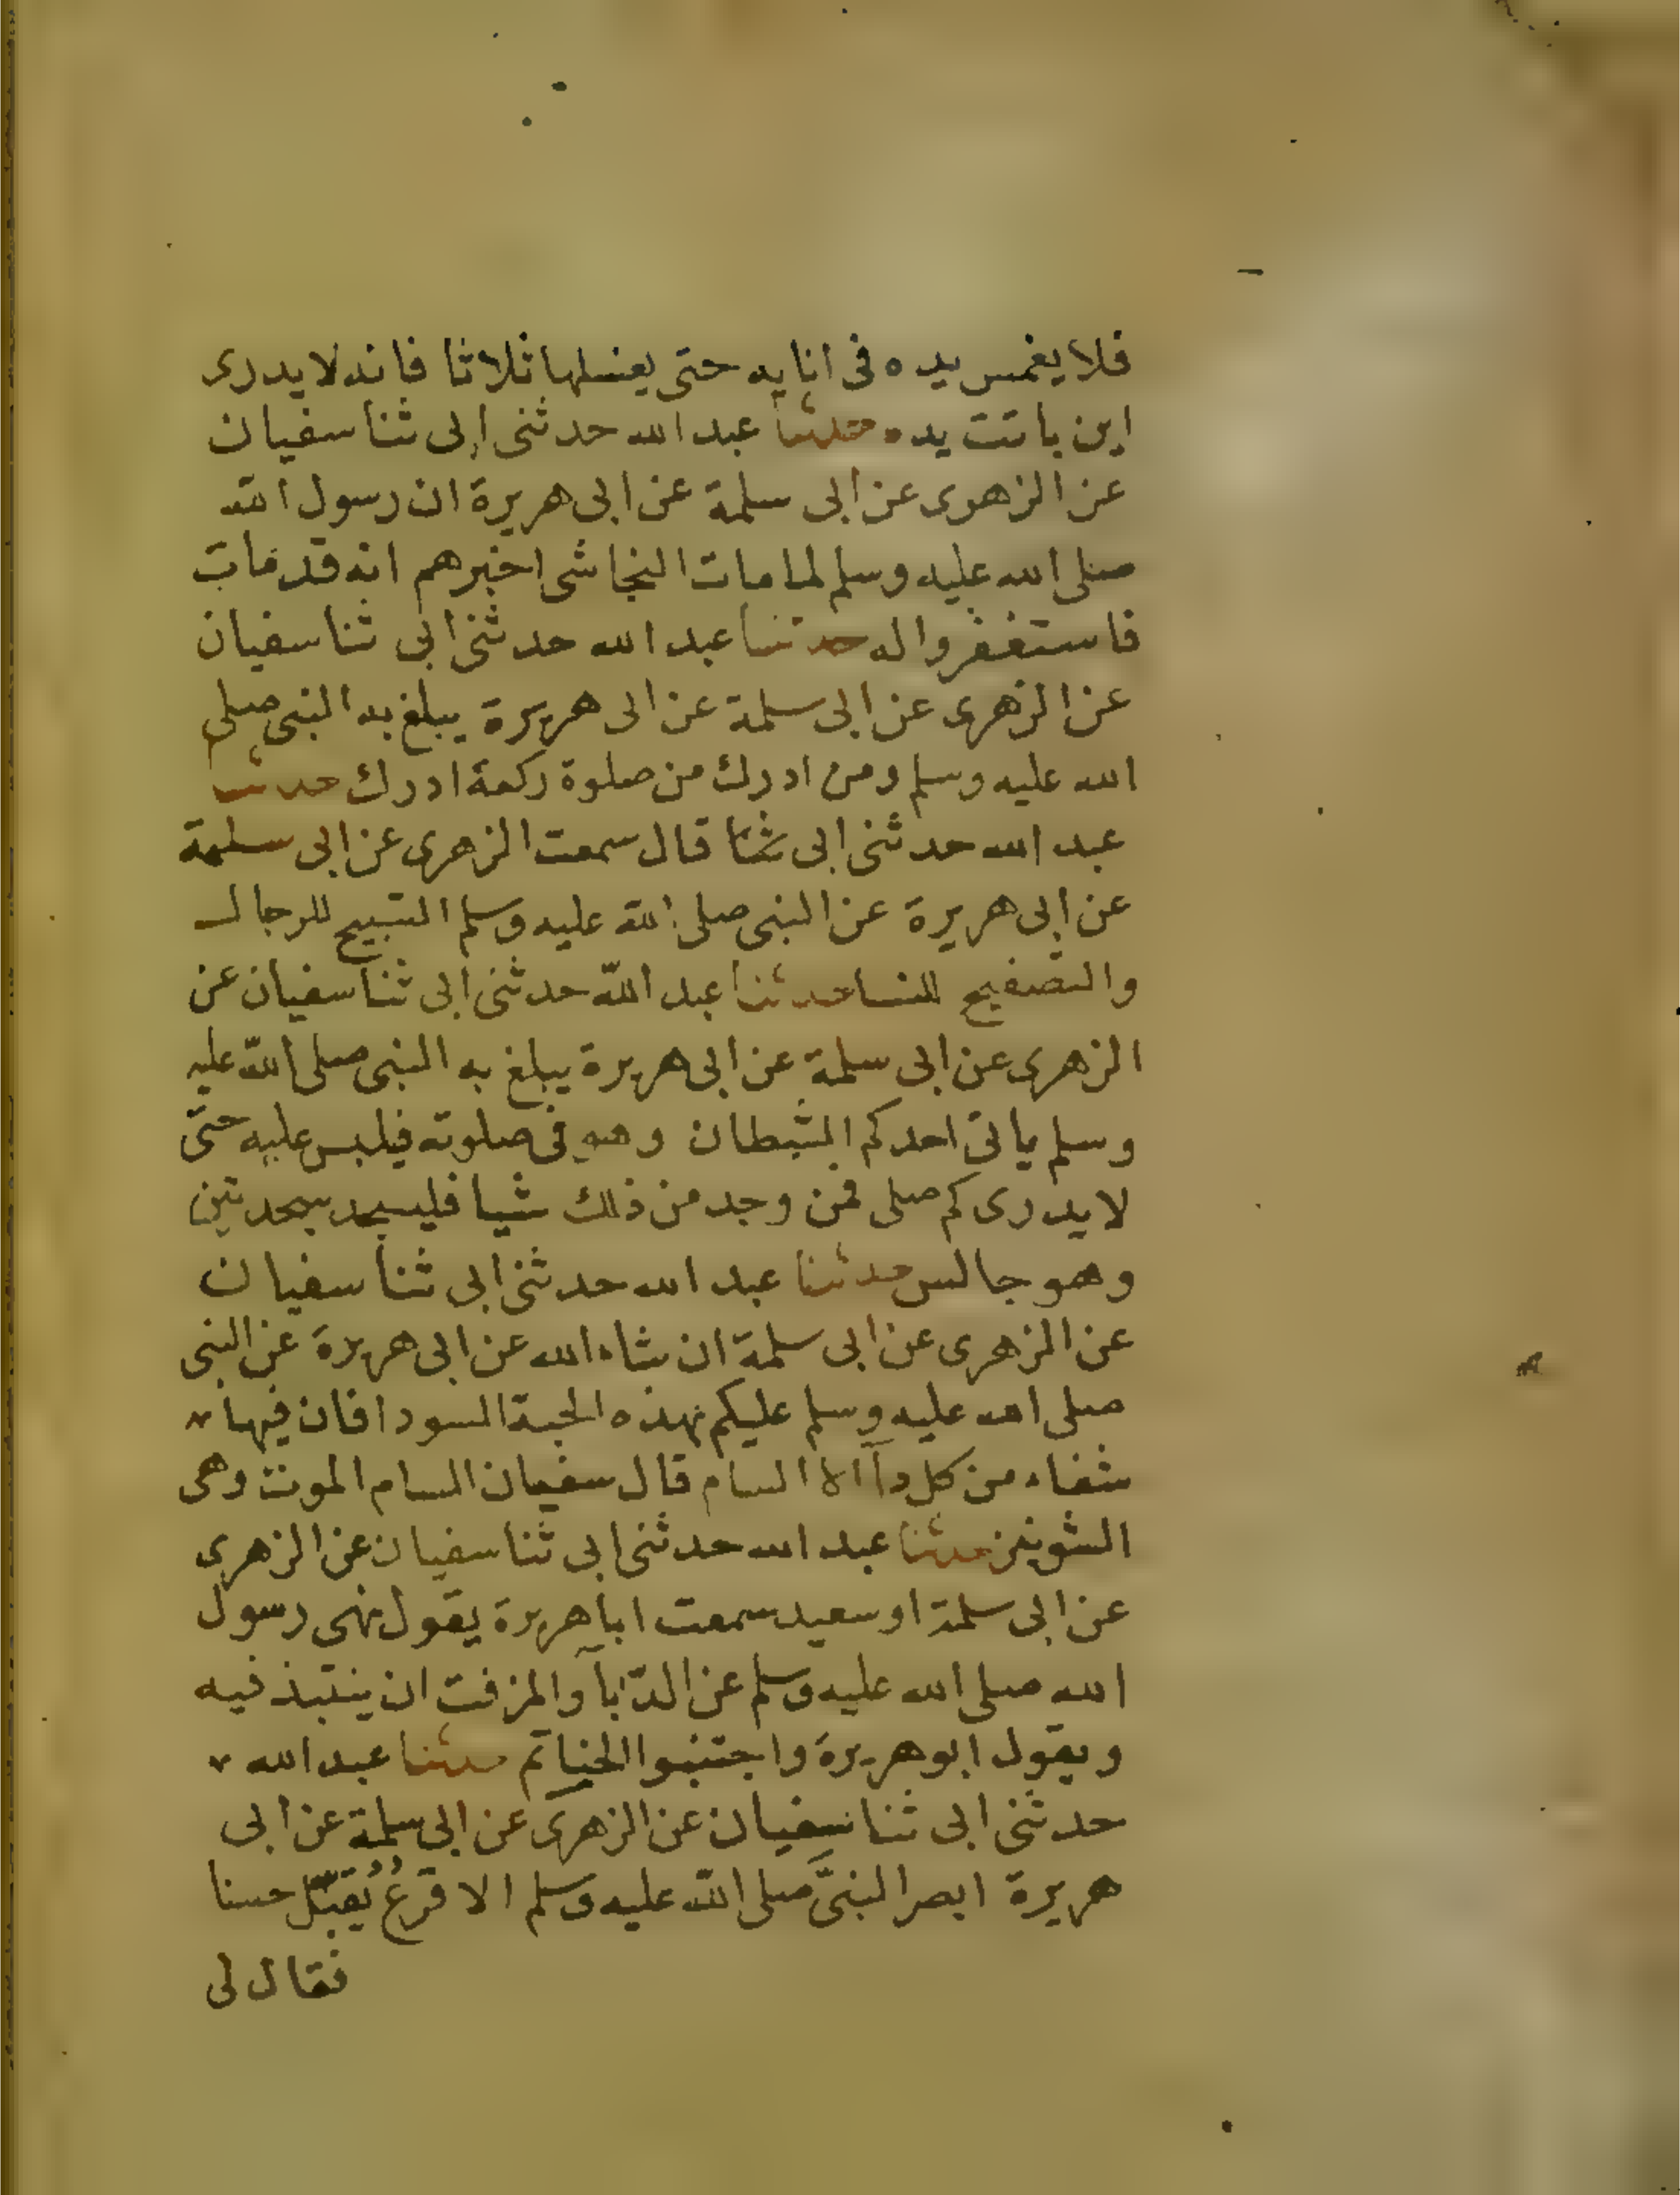 فلا يغمس يده فى انايه حتى يغسلها ثلاثا فانه لا يدرى
اين باتت يده حدثنا عبد الله حدثنى ابى ثنا سفيان
عن الزهرى عن ابى سلمة عن ابى هريرة ان رسول الله
صلى الله عليه وسلم لما مات النجاشى اخبرهم انه قد مات
فاستغفروا له حدثنا عبد الله حدثنى ابى ثنا سفيان
عن الزهرى عن ابى سلمة عن ابى هريرة يبلغ به النبى صلى
الله عليه وسلم ومن ادرك من صلوة ركعة ادرك حدثنا
عبد الله حدثنى ابى ثنا قال سمعت الزهرى عن ابى سلمة
عن ابى هريرة عن النبى صلى الله عليه وسلم التسبيح للرجال
والتصفيح للنسا حدثنا عبد الله حدثنى ابى ثنا سفيان عن
الزهرى عن ابى سلمة عن ابى هريرة يبلغ به النبى صلى الله عليه
وسلم ياتى احدكم الشيطان وهو فى صلوته فيلبس عليه حتى
لا يدرى كم صلى فمن وجد من ذلك شيا فليسجد سجدتين
وهو جالس حدثنا عبد الله حدثنى ابى ثنا سفيان
عن الزهرى عن ابى سلمة ان شاء الله عن ابى هريرة عن النبى
صلى الله عليه وسلم عليكم بهذه الحبة السودا فان فيها
شفاء من كل دآ الا السام قال سفيان السام الموت وهى
الشونيز حدثنا عبد الله حدثنى ابى ثنا سفيان عن الزهرى
عن ابى سلمة او سعيد سمعت ابا هريرة يقول نهى رسول
الله صلى الله عليه وسلم عن الدّبآ والمزفت ان ينتبذ فيه
ويقول ابو هريرة واجتنبوا الحناتم حدثنا عبد الله
حدثنى ابى ثنا سفيان عن الزهرى عن ابى سلمة عن ابى
هريرة ابصر النبىَّ صلى الله عليه وسلم الاقرعُ يُقبّل حسنا
فقال لى